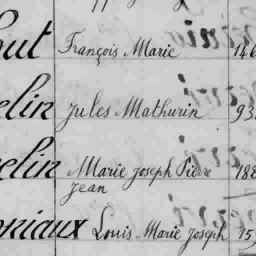 hut François Marie 146
elin Jules Mathurin 93
elin Marie Joseph Pierre 188
Jean
oniaux Louis Marie Joseph 15